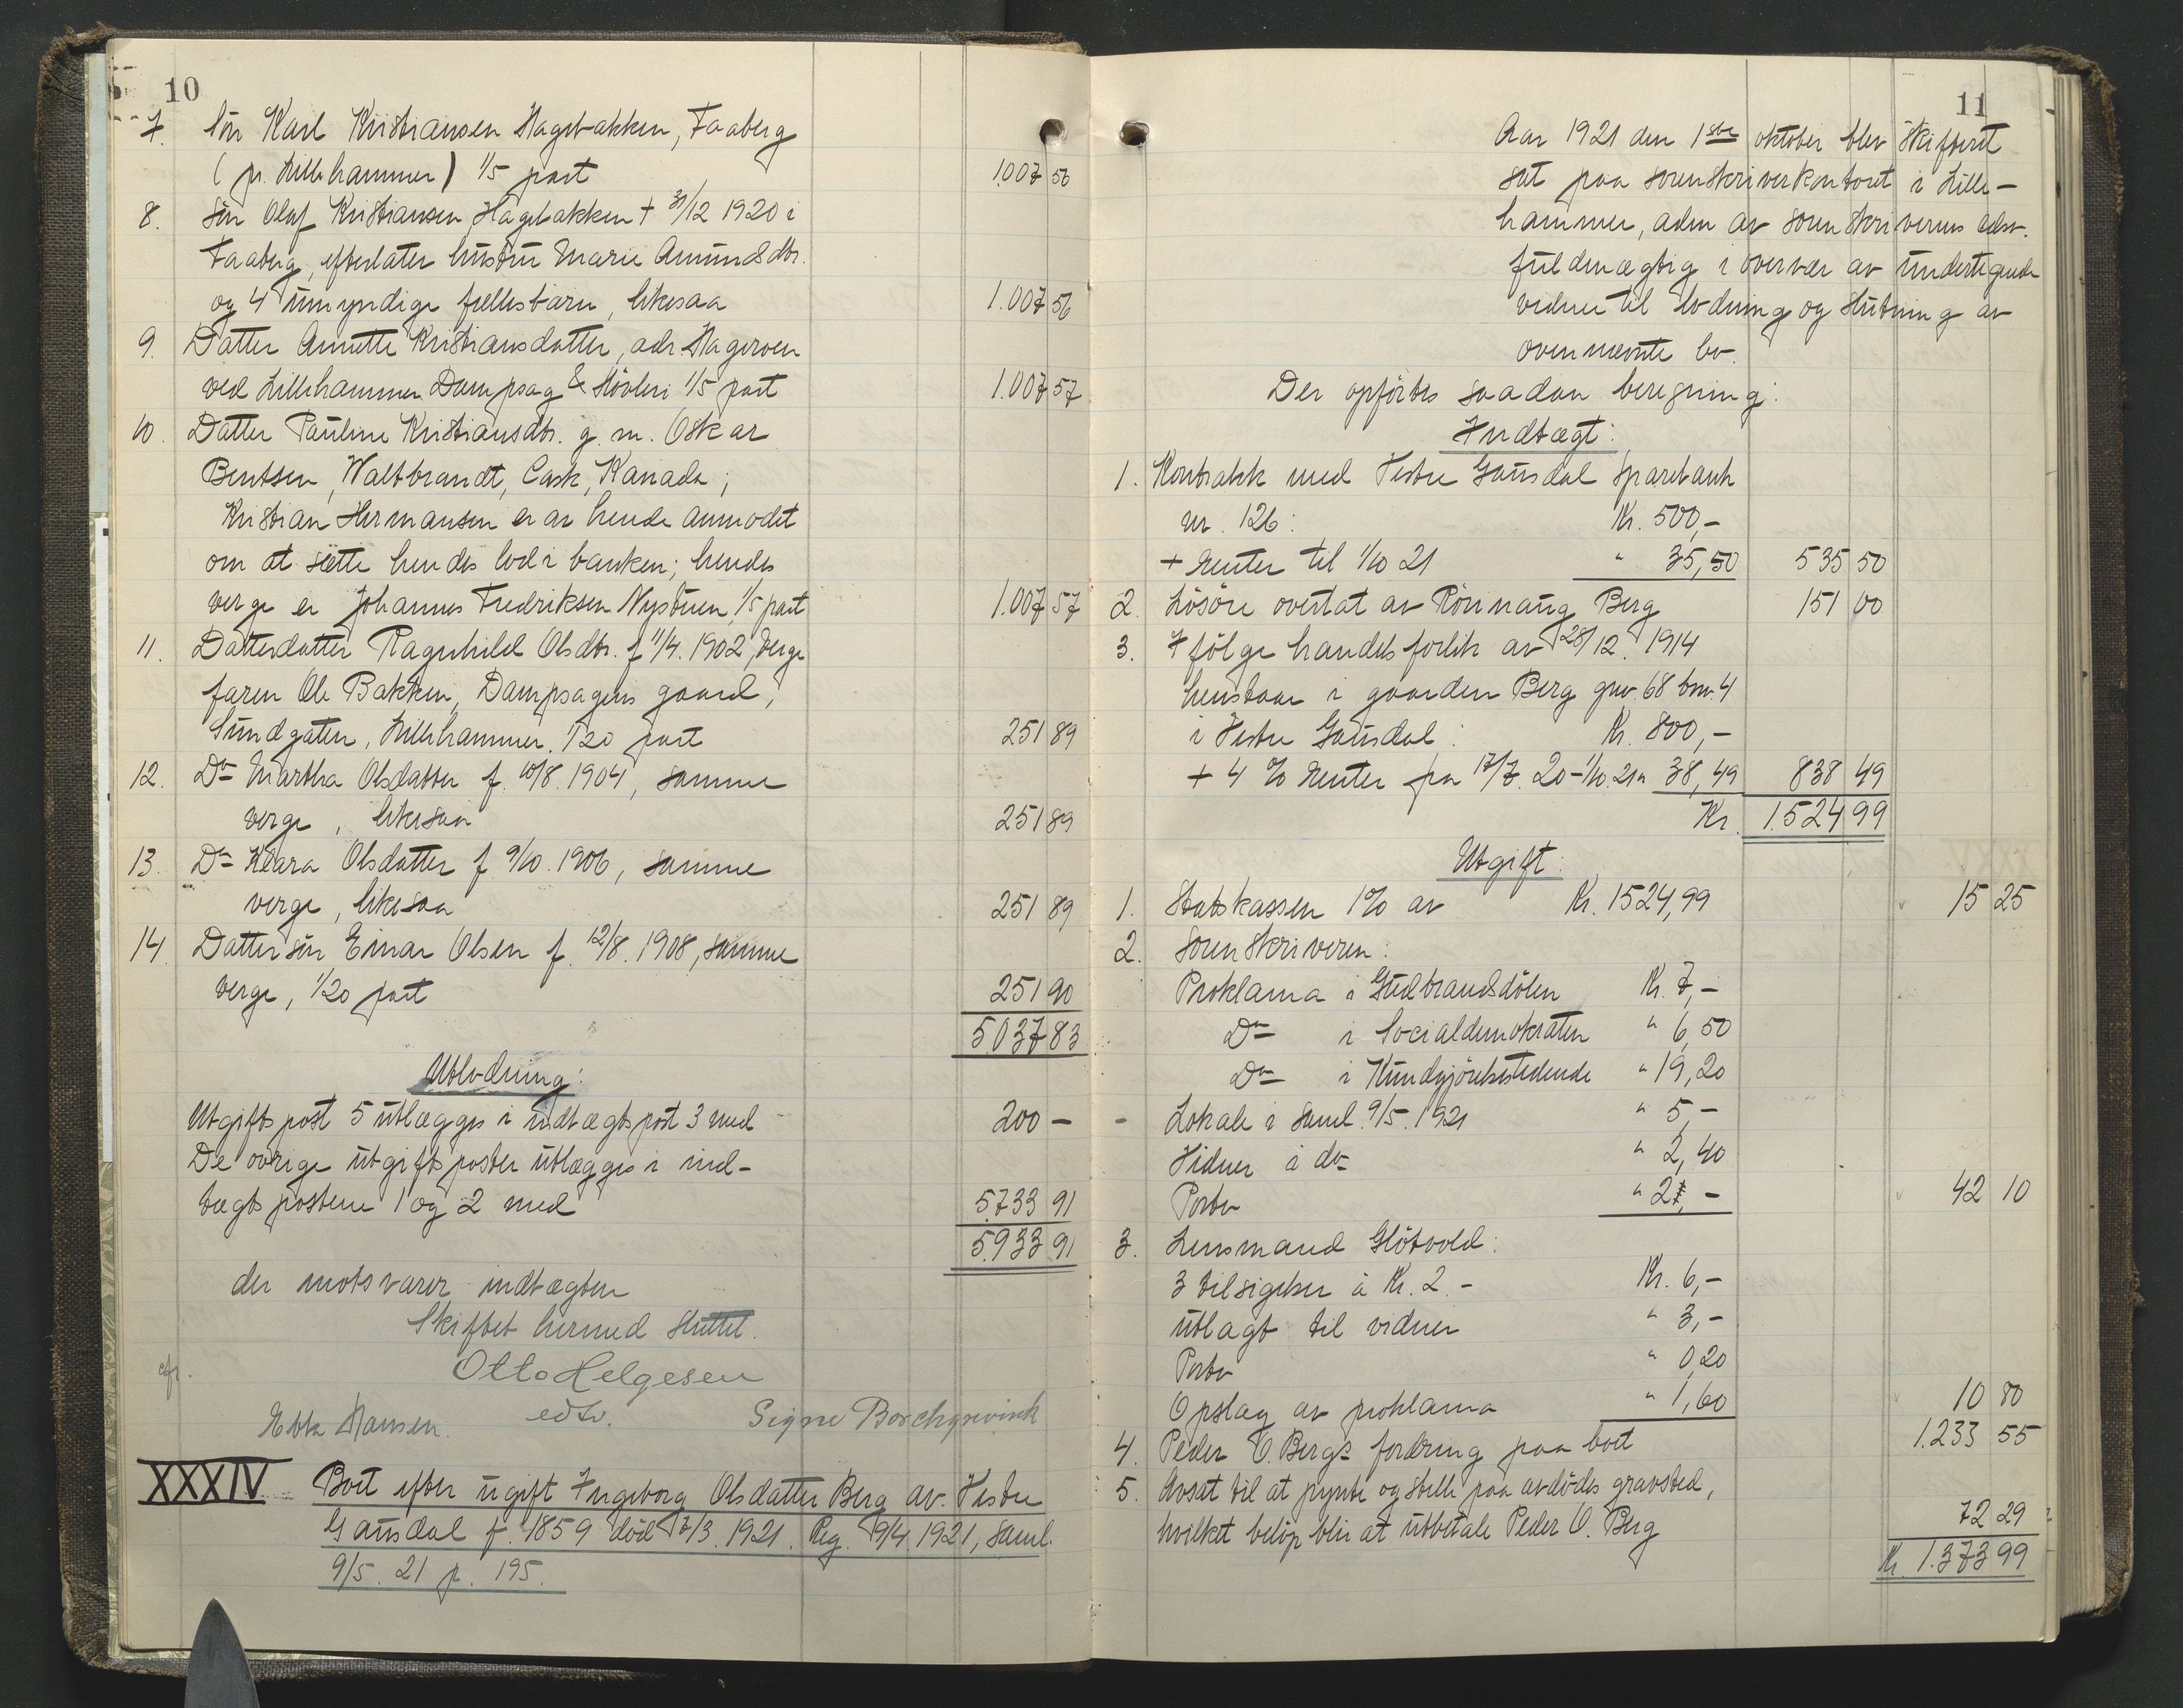 10
7. Sön Karl Kristiansen Hagebakken, Faaberg
(pr. Lillehammer) 1/5 part 1.007 56
8. Sön Olaf Kristiansen Hagebakken + 31/12 1920 i
Faaberg, efterlater hustru Marie Amundsdtr.
og 4 umyndige fællesbarn, likesaa 1.007 56
9. Datter Annette Kristiansdatter, adr. Hageroen
ved Lillehammer Dampsag & Hövleri 1/5 part 1.007 57
10. Datter Pauline Kristiansdtr. g. m. Oskar
Bentsen, Waltbrandt, Cask, Kanada;
Kristian Hermansen er av hende anmodet
om at sætte hendes lod i banken; hendes
verge er Johannes Fredriksen Nystuen, 1/5 part 1.007 57
11. Datterdatter Ragnhild Olsdtr. f 11/4. 1902, verge
faren Ole Bakken, Dampsagens gaard,
Sundgaten, Lillehammer. 1/20 part 251 89
12. Do Martha Olsdatter f. 10/8. 1904, samme
verge, likesaa 251 89
13. Do Klara Olsdatter f 9/10. 1906, samme
verge, likesaa 251 89
14. Dattersön Einar Olsen f. 12/8. 1908, samme
verge, 1/20 part 251 90
5.037 83
Utlodning:
Utgiftspost 5 utlægges i indtægtspost 3 med 200 –
De övrige utgiftsposter utlægges i ind-
tægtspostene 1 og 2 med 5.733 91
5.933 91
der motsvarer indtægten
Skiftet hermed sluttet.
cfr. Otto Helgesen
edsv.
Ebba Hansen. Signe Borchgrevink
XXXIV Boet efter ugift Ingeborg Olsdatter Berg av Vestre
Gausdal f. 1859 död 7/3. 1921. Reg. 9/4 1921, saml.
9/5. 21 p. 195.
11
Aar 1921 den 1ste oktober blev skifteret
sat paa sorenskriverkontoret i Lille-
hammer, adm av sorenskriverens edsv.
fuldmægtig i overvær av undertegnede
vidner til lodning og slutning av
ovennævnte bo.
Der opförtes saadan beregning:
Indtægt:
1. Kontrabok med Vestre Gausdal Sparebank
nr. 126: Kr. 500,–
+ renter til 1/10 21 " 35,50 535 50
2. Lösöre overtat av Rönnaug Berg 151 00
3. Ifölge handelsforlik av 28/12. 1914
henstaar i gaarden Berg gnr. 68 bnr. 4
i Vestre Gausdal: Kr. 800,–
+ 4 % renter fra 17/7. 20 – 1/10. 21 " 38,49 838 49
Kr. 1.524 99
Utgift:
1. Statskassen 1% av Kr. 1524,99 15 25
2. Sorenskriveren:
Proklama i Gudbrandsdölen Kr. 7,–
Do i Socialdemokraten " 6,50
Do i Kundgjörelsestidende " 19,20
– Lokale i saml. 9/5. 1921 " 5,–
Vidner i do " 2,40
Porto " 2,– 42 10
3. Lensmand Slötvold:
3 tilsigelser à Kr. 2.– Kr. 6,–
utlagt til vidner " 3,–
Porto " 0,20
Opslag av proklama " 1,60 10 80
4. Peder O. Bergs fordring paa boet 1.233 55
5. Avsat til at pynte og stelle paa avdödes gravsted,
hvilket belöp blir at utbetale Peder O. Berg 72 29
Kr. 1.373 99